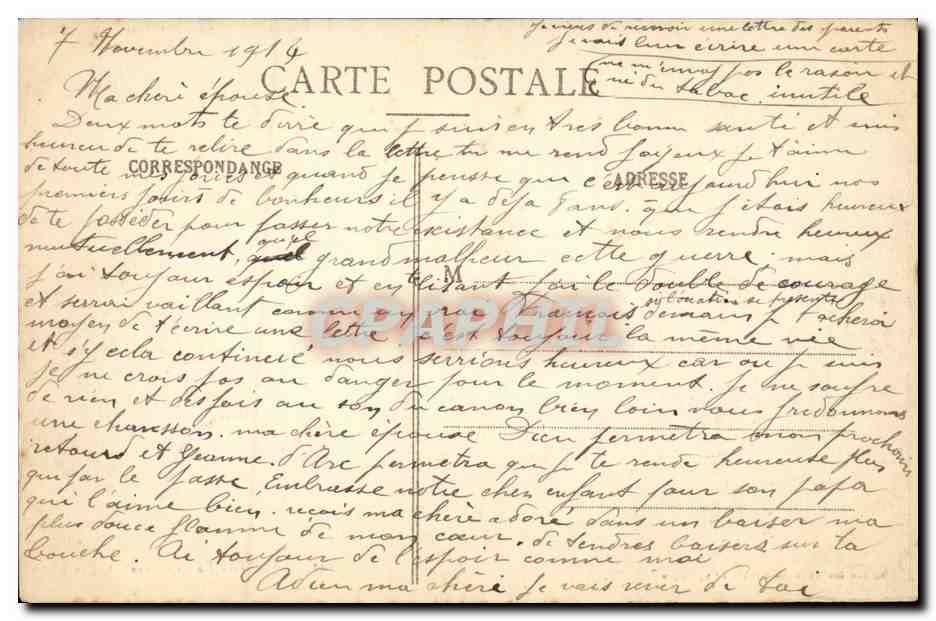 7 Novembre 1914
Je viens de recevoir une lettre des parents
je vais leur écrire une carte
ne m'envoi pas le rasoir et
ni du tabac inutile
CARTE POSTALE
Ma chère épouse
Deux mots te dire que je suis en tres bonne santé et suis
heureux de te relire dans la lettre tu me rend joyeux je t'aime
CORRESPONDANCE
ADRESSE
de toute mes forces et quand je pensse que c'est aujourd'hui nos
premiers jours de bonheurs il y a deja ans. que j'étais heureux
de te posséder pour passer notre existance et nous rendre heureux
mutuellement, quel grand malheur cette guerre. mais
M
j'ai toujour espoir et en te lisant j'ai le double de courage
et serrai vaillant comme un vrai Francais demain si l'ocation se presente je tacherai
moyen de t'écrire une lettre c'est toujour la même vie
CPAPHIL
et s'y cela continuré, nous serrions heureux car ou je suis
je ne crois pas au danger pour le moment. je ne soufre
de rien et des fois au son du canon bien loin nous fredonnons
une chansson. ma chère épouse Dieu permetra mon prochain
retourd et Jeanne d'Arc permetra que je te rende heureuse plus
que par le passe. Embrasse notre cher enfant pour son papa
qui l'aime bien. recois ma chère adoré dans un baiser ma
plus douce flamme de mon cœur. de tendres baisers sur ta
bouche. Ai toujour de l'espoir comme moi
Adieu ma chère je vais rever de toi